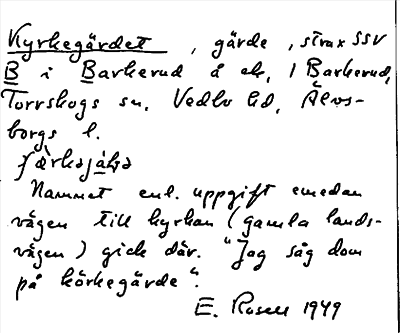 Kyrkegärdet, gärde, strax SSV
B i Barkerud å ek. / Barkerud,
Torrskogs sn, Vedbo hd, Älvs-
borgs l.
Namnet enl. uppgift emedan
vägen till kyrkan (gamla lands-
vägen) gick där. "Jag såg dom
på körkegärde".
E. Rosell 1949